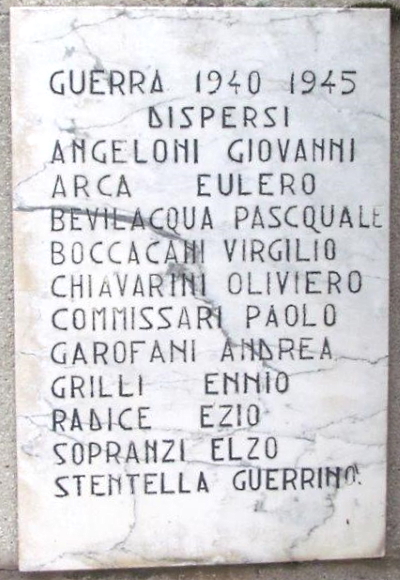 GUERRA 1940 1945
DISPERSI
ANGELONI GIOVANNI
ARCA EULERO
BEVILACQUA PASCQUALE
BOCCACANI VIRGILIO
CHIAVARINI OLIVIERO
COMMISSARI PAOLO
GAROFANI ANDREA
GRILLI ENNIO
RADICE EZIO
SOPRANZI ELZO
STENTELLA GUERRINO